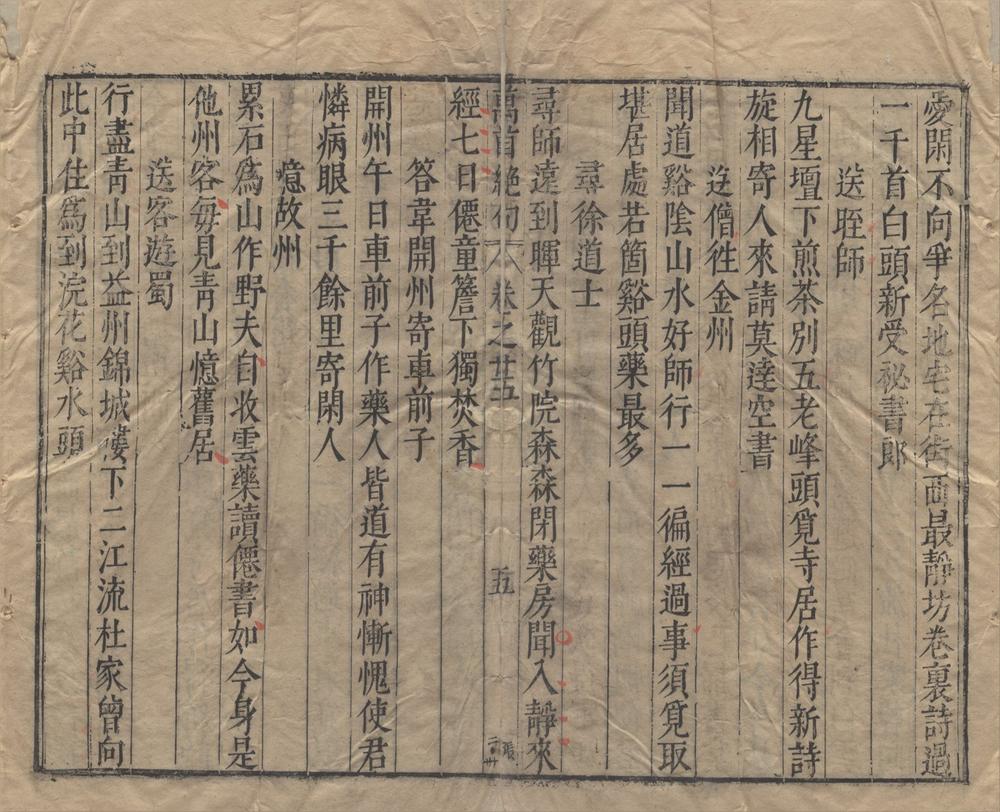 愛閑不向爭名地宅在街西最靜坊卷裏詩過
一千首白頭新受秘書郎
送晊師
九星壇下煎茶別五老峰頭覓寺居作得新詩
旋相寄人來請莫達空書
送僧徃金州
聞道谿陰山水好師行一一徧經過事須覓取
堪居處若箇谿頭藥最多
尋徐道士
尋師遠到暉天觀竹院森森閉藥房聞入靜來
萬首絶句 六 卷之廿五 五
經七日僊童簷下獨焚香
答韋開州寄車前子
開州午日車前子作藥人皆道有神慚愧使君
憐病眼三千餘里寄閑人
憶故州
累石爲山作野夫自收雲藥讀僊書如今身是
他州客每見青山憶舊居
送客遊蜀
行盡青山到益州錦城樓下二江流杜家曾向
此中住爲到浣花谿水頭